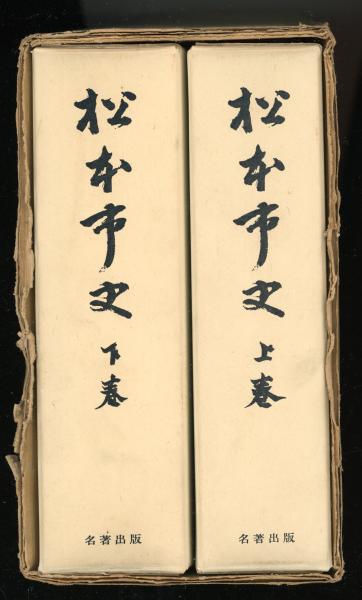 松本市史
上巻
名著出版
松本市史
下巻
名著出版